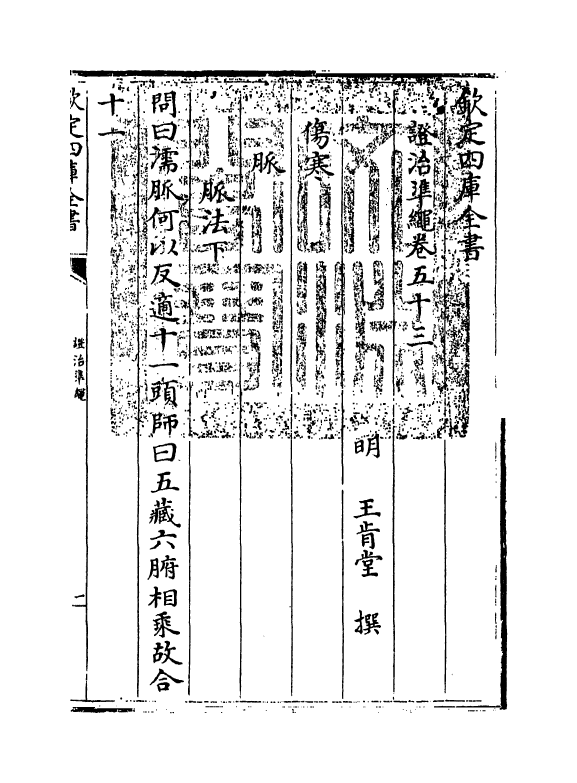 欽定四庫全書
證治凖繩卷五十三
明 王肯堂 撰
傷寒
脈
脈法下
問曰濡脈何以反適十一頭師曰五藏六腑相乘故合
十一
欽定四庫全書
證治凖繩
二